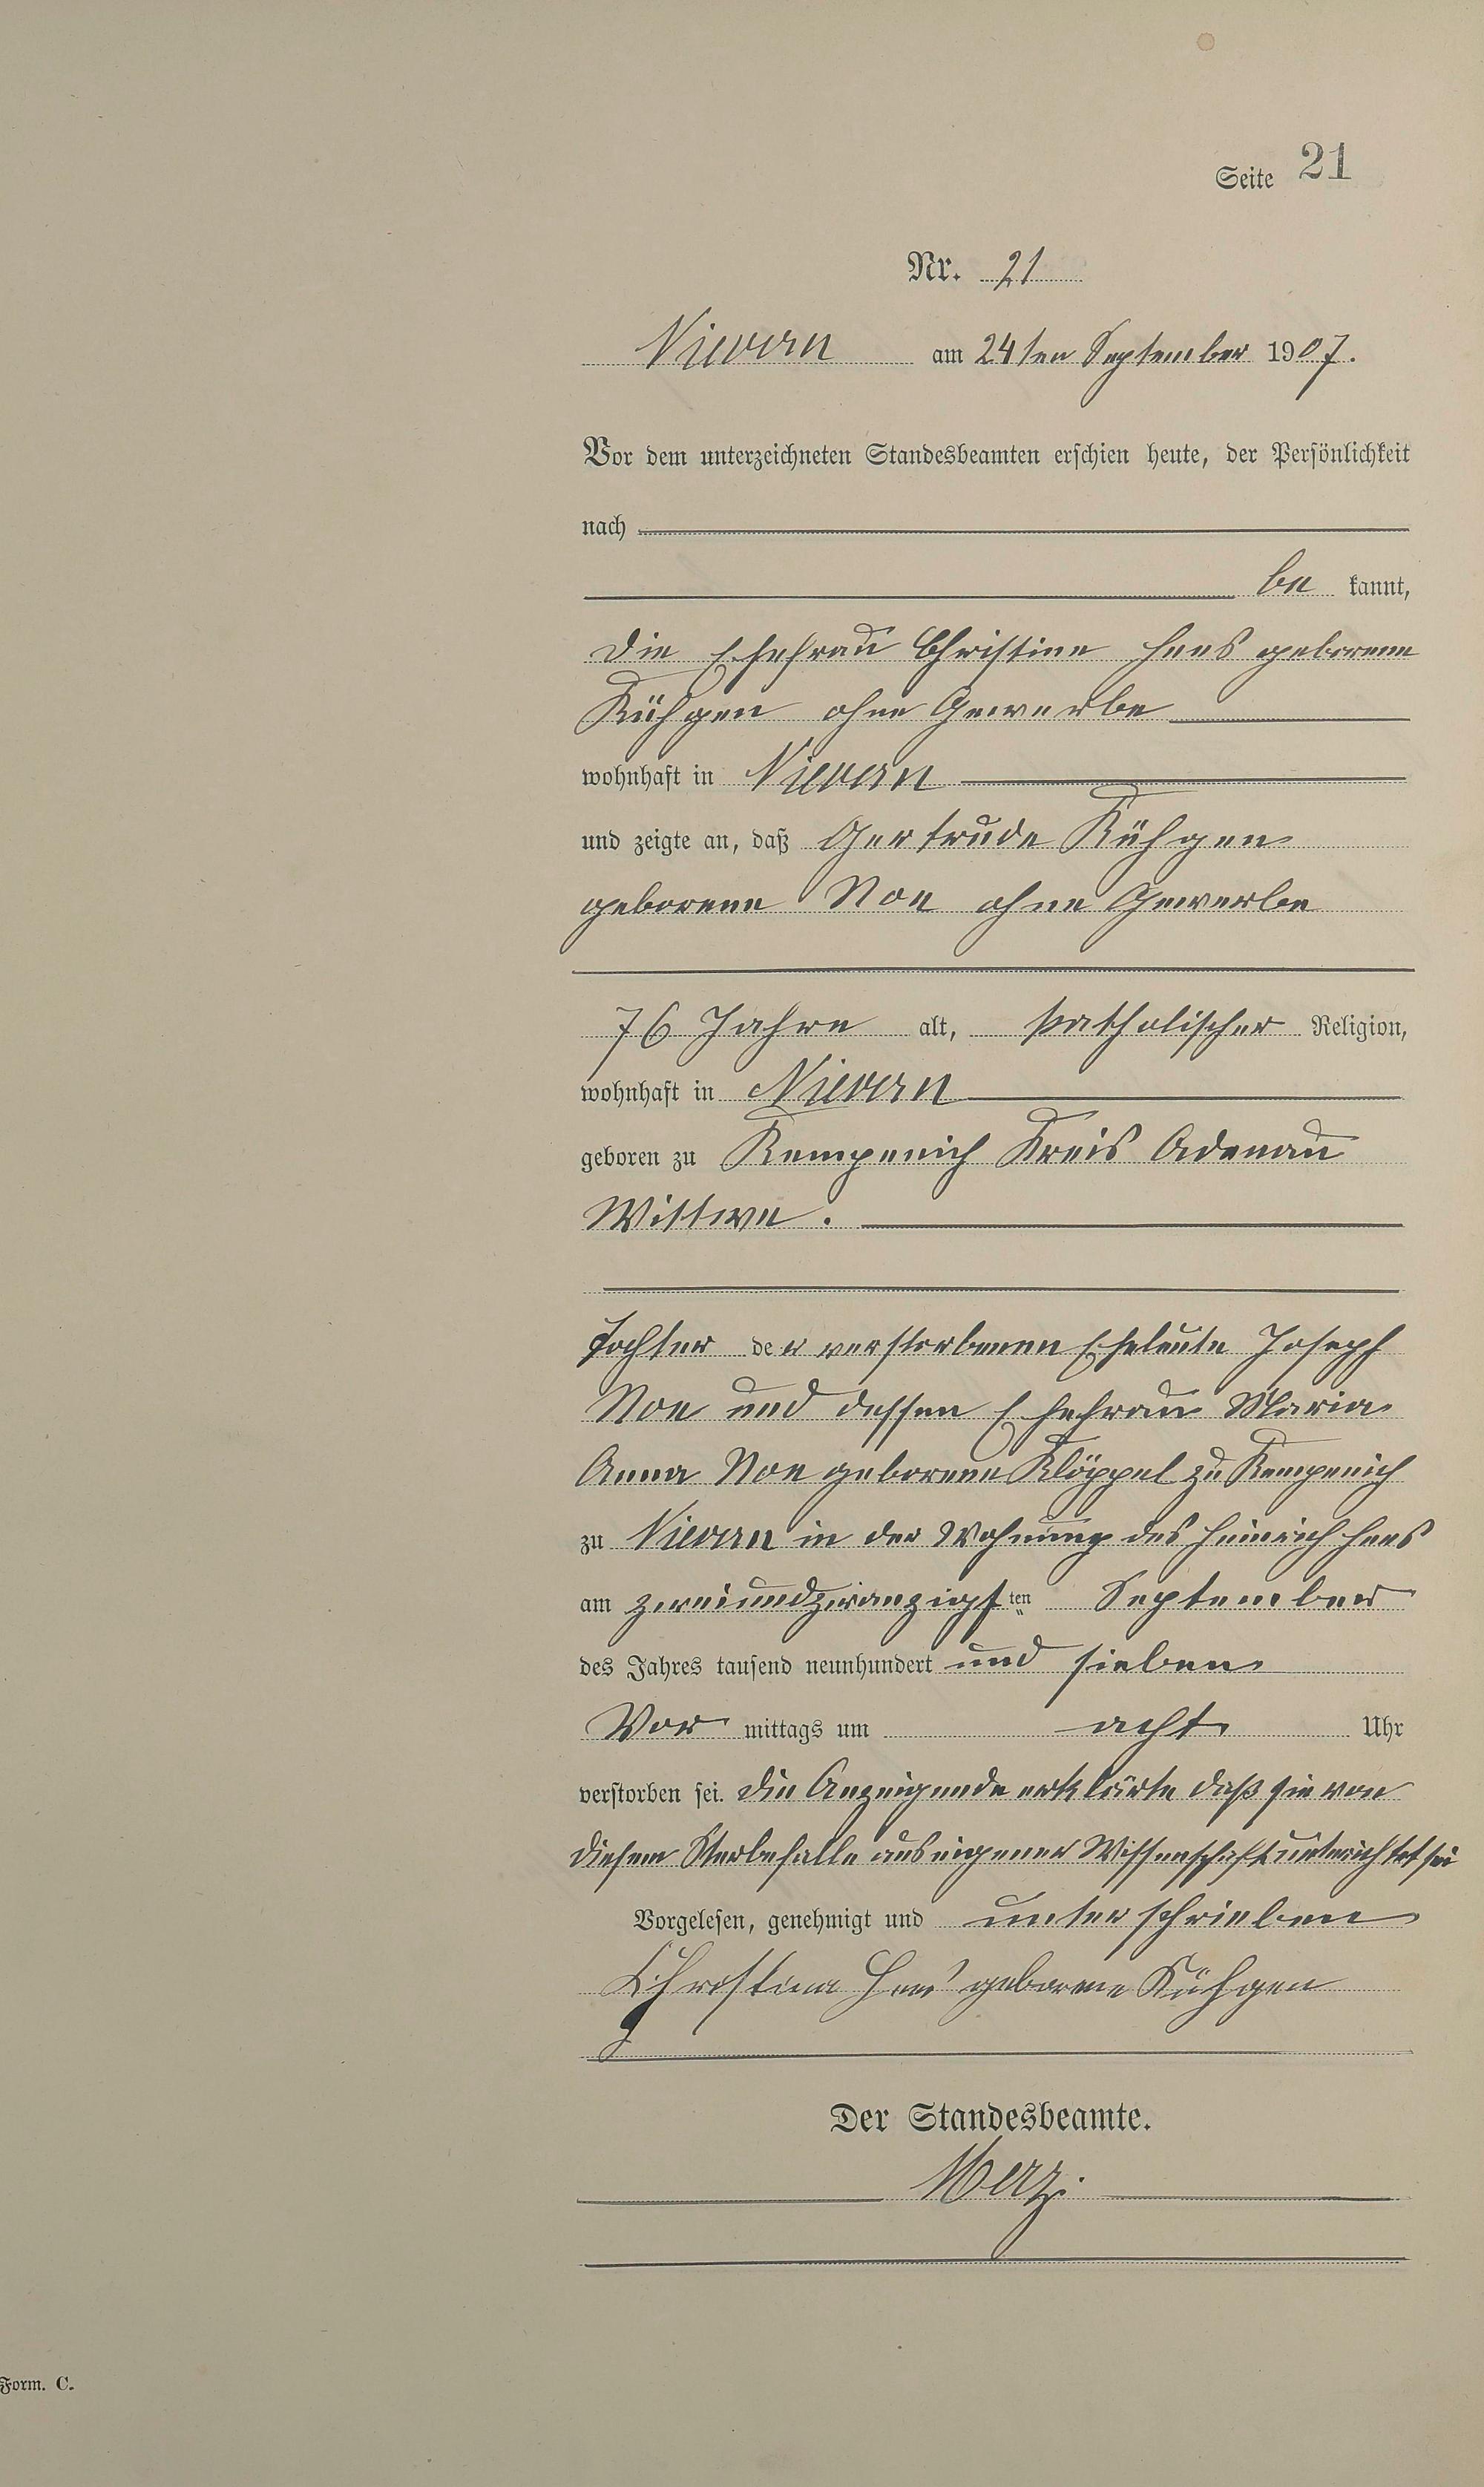 Seite 21
Nr. 21
Nievern am 24ten September 1907.
Vor dem unterzeichneten Standesbeamten erschien heute, der Persönlichkeit
nach
be kannt,
die Ehefrau Christine Hees geborene
Kühgen ohne Gewerbe
wohnhaft in Nievern
und zeigte an, daß Gertrude Kühgen
geborene Noe ohne Gewerbe
76 Jahre alt, katholischer Religion,
wohnhaft in Nievern
geboren zu Kempenich Kreis Adenau
Wittwe.
Tochter der verstorbenen Eheleute Joseph
Noe und dessen Ehefrau Maria
Anna Noe geborene Klöppel zu Kempenich
zu Nievern in der Wohnung des Heinrich Hees
am zweiundzwanzigsten September
des Jahres tausend neunhundert und sieben
Vor mittags um acht Uhr
verstorben sei. Die Anzeigende erklärte daß sie von
diesem Sterbefalle aus eigener Wissenschaft unterrichtet sei
Vorgelesen, genehmigt und unterschrieben
Christina Hees geborene Kühgen
Der Standesbeamte.
Merz.
Form. C.